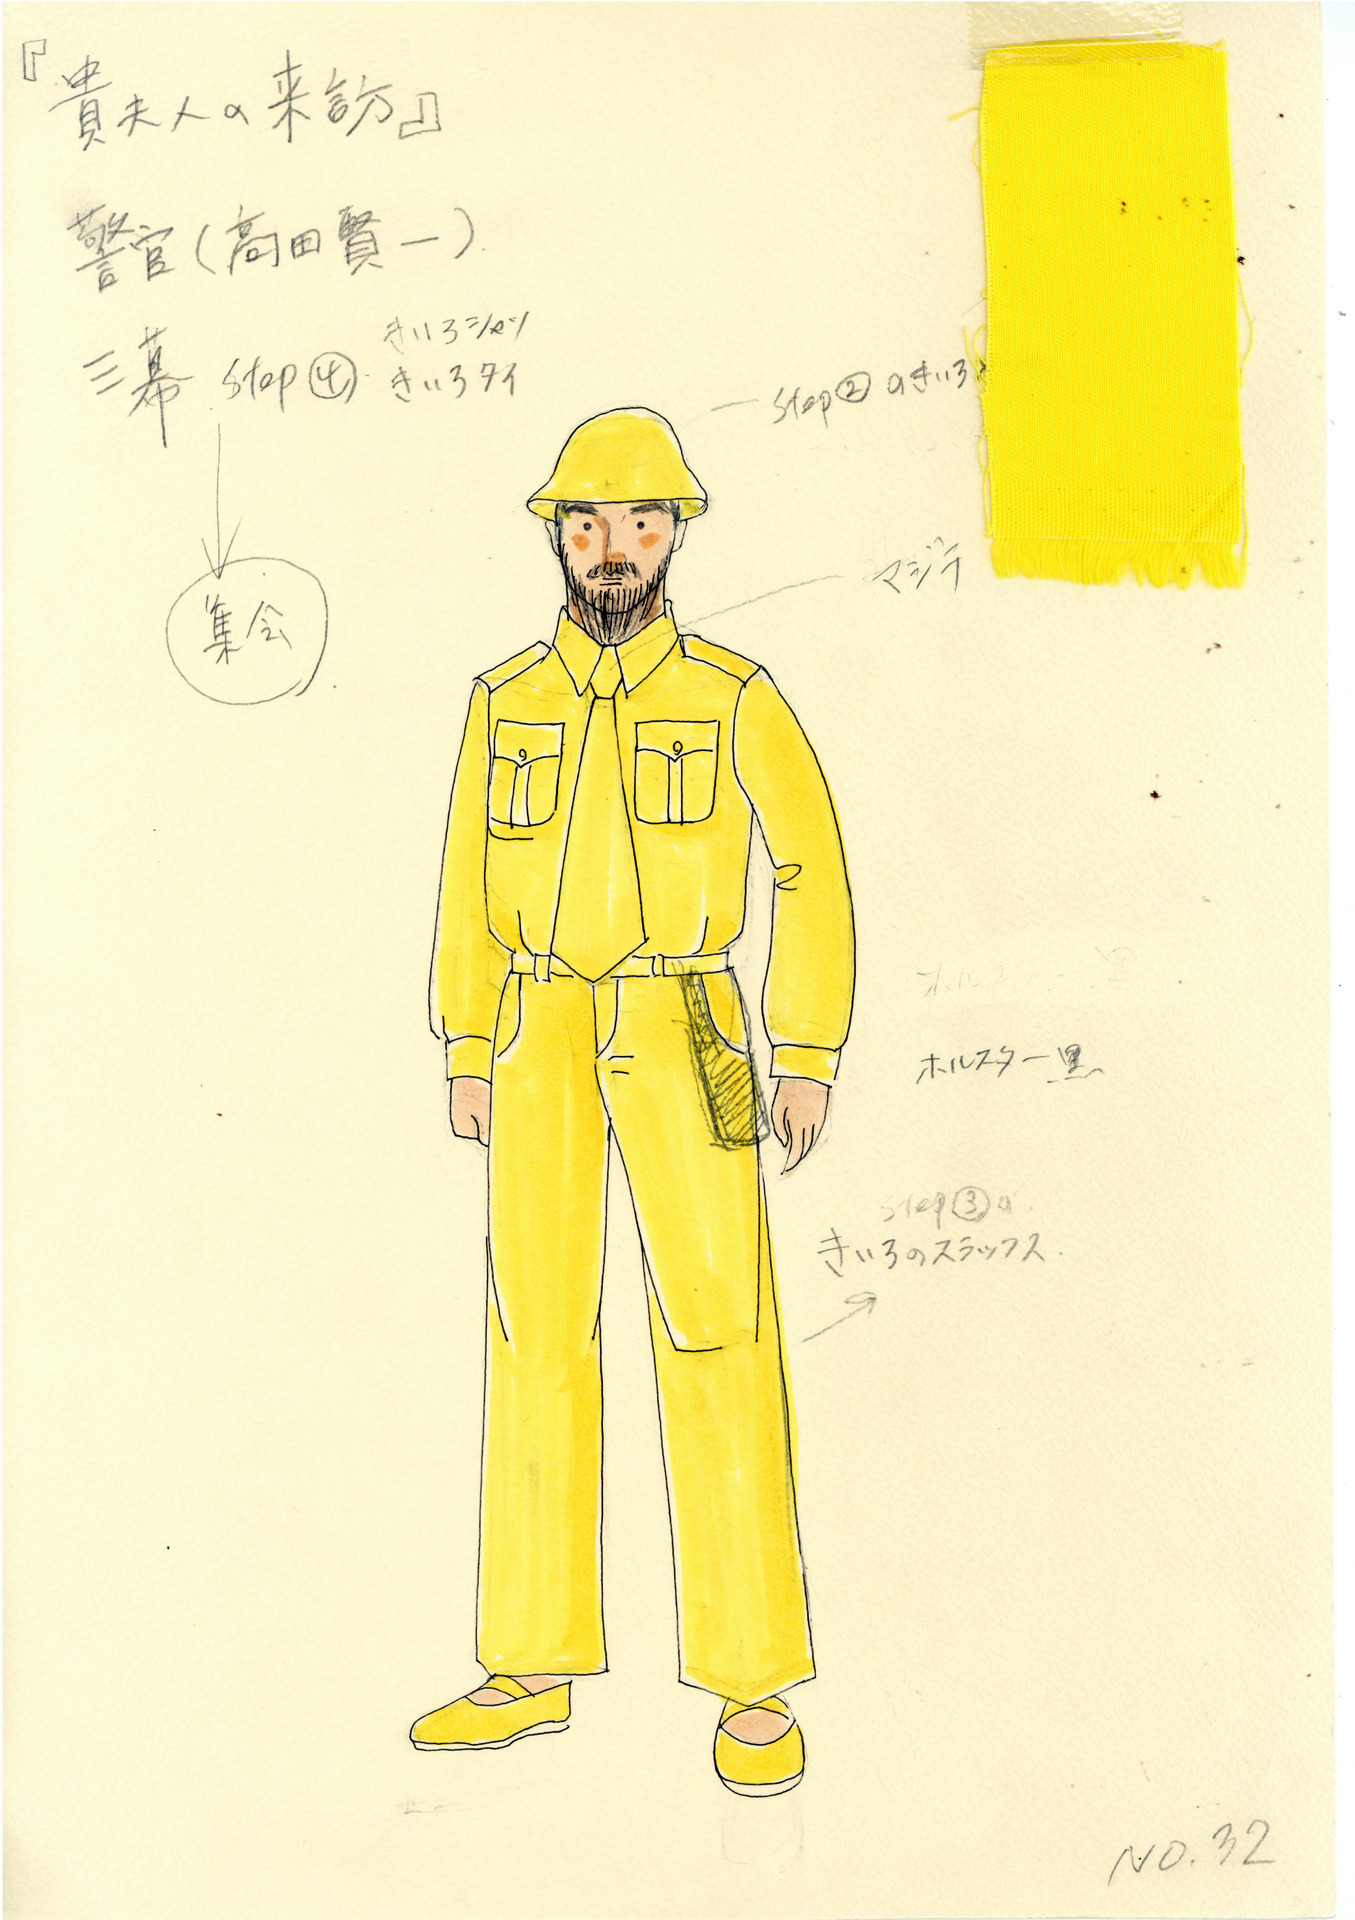 『貴夫人の来訪』
警官(高田賢一)
三幕 step④
きいろシャツ
きいろタイ
step②のきいろ
集会
マジテ
ホルスター黒
step③の
きいろのスラックス.
NO.32